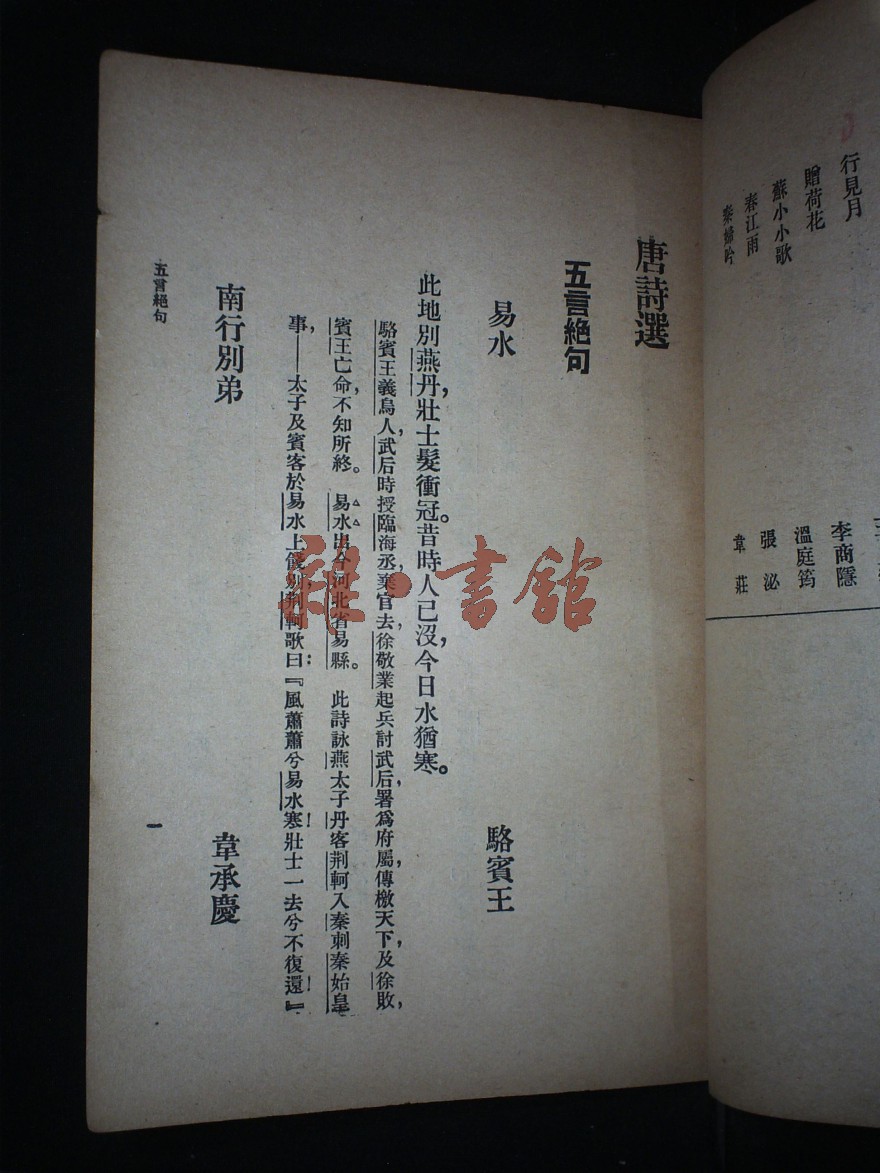 行見月
贈荷花
李商隱
蘇小小歌
溫庭筠
春江雨
張泌
秦婦吟
韋莊
唐詩選
五言絕句
易水
駱賓王
此地別燕丹，壯士髮衝冠。昔時人已沒，今日水猶寒。
駱賓王義烏人，武后時授臨海丞棄官去，徐敬業起兵討武后，署爲府屬，傳檄天下，及徐敗，
賓王亡命，不知所終。 易水出今河北省易縣。 此詩詠燕太子丹客荆軻入秦刺秦始皇
事，——太子及賓客於易水上餞別，荆軻歌曰：『風蕭蕭兮易水寒！壯士一去兮不復還！』
南行別弟
韋承慶
五言絕句
一
雜·書館